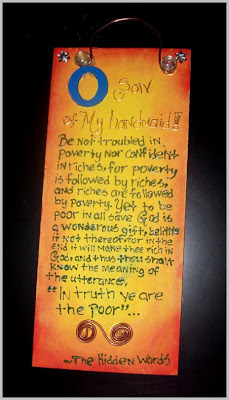 O Son
of My handmaid!
Be not troubled in
poverty nor confident
in riches, for poverty
is followed by riches,
and riches are followed
by poverty. Yet to be
poor in all save God is
a wonderous gift, belittle
it not thereof for in the
end it will make thee rich in
God, and thus thou shalt
know the meaning of
the utterance,
"In truth ye are
the poor"...
~The Hidden Words